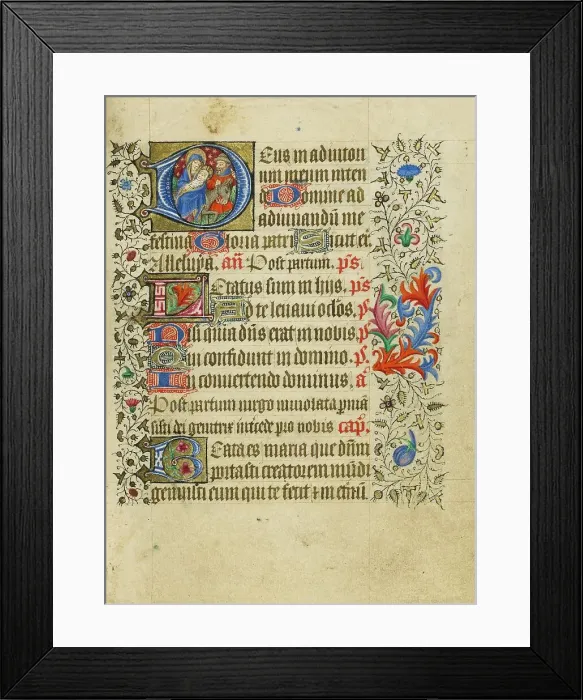 Deus in adiutori
um meum inten
de Domine ad
adiuuandū me
festina Gloria patri Sicut er.
Alleluya. añ Post partum. p̄s
Letatus sum in hijs. p̄s
Ad te leuaui oc̄los. p̄.
Nisi quia dn̄s erat in nobis p̄.
Qui confidunt in domino. p̄.
In conuertendo dominus, a
Post partum uirgo inuiolata pmā
sisti dei genitrix intecede pro nobis cap̄.
Beata es maria que dn̄m
portasti creatorem mūdi
genuisti eum qui te fecit ⁊ in etnū